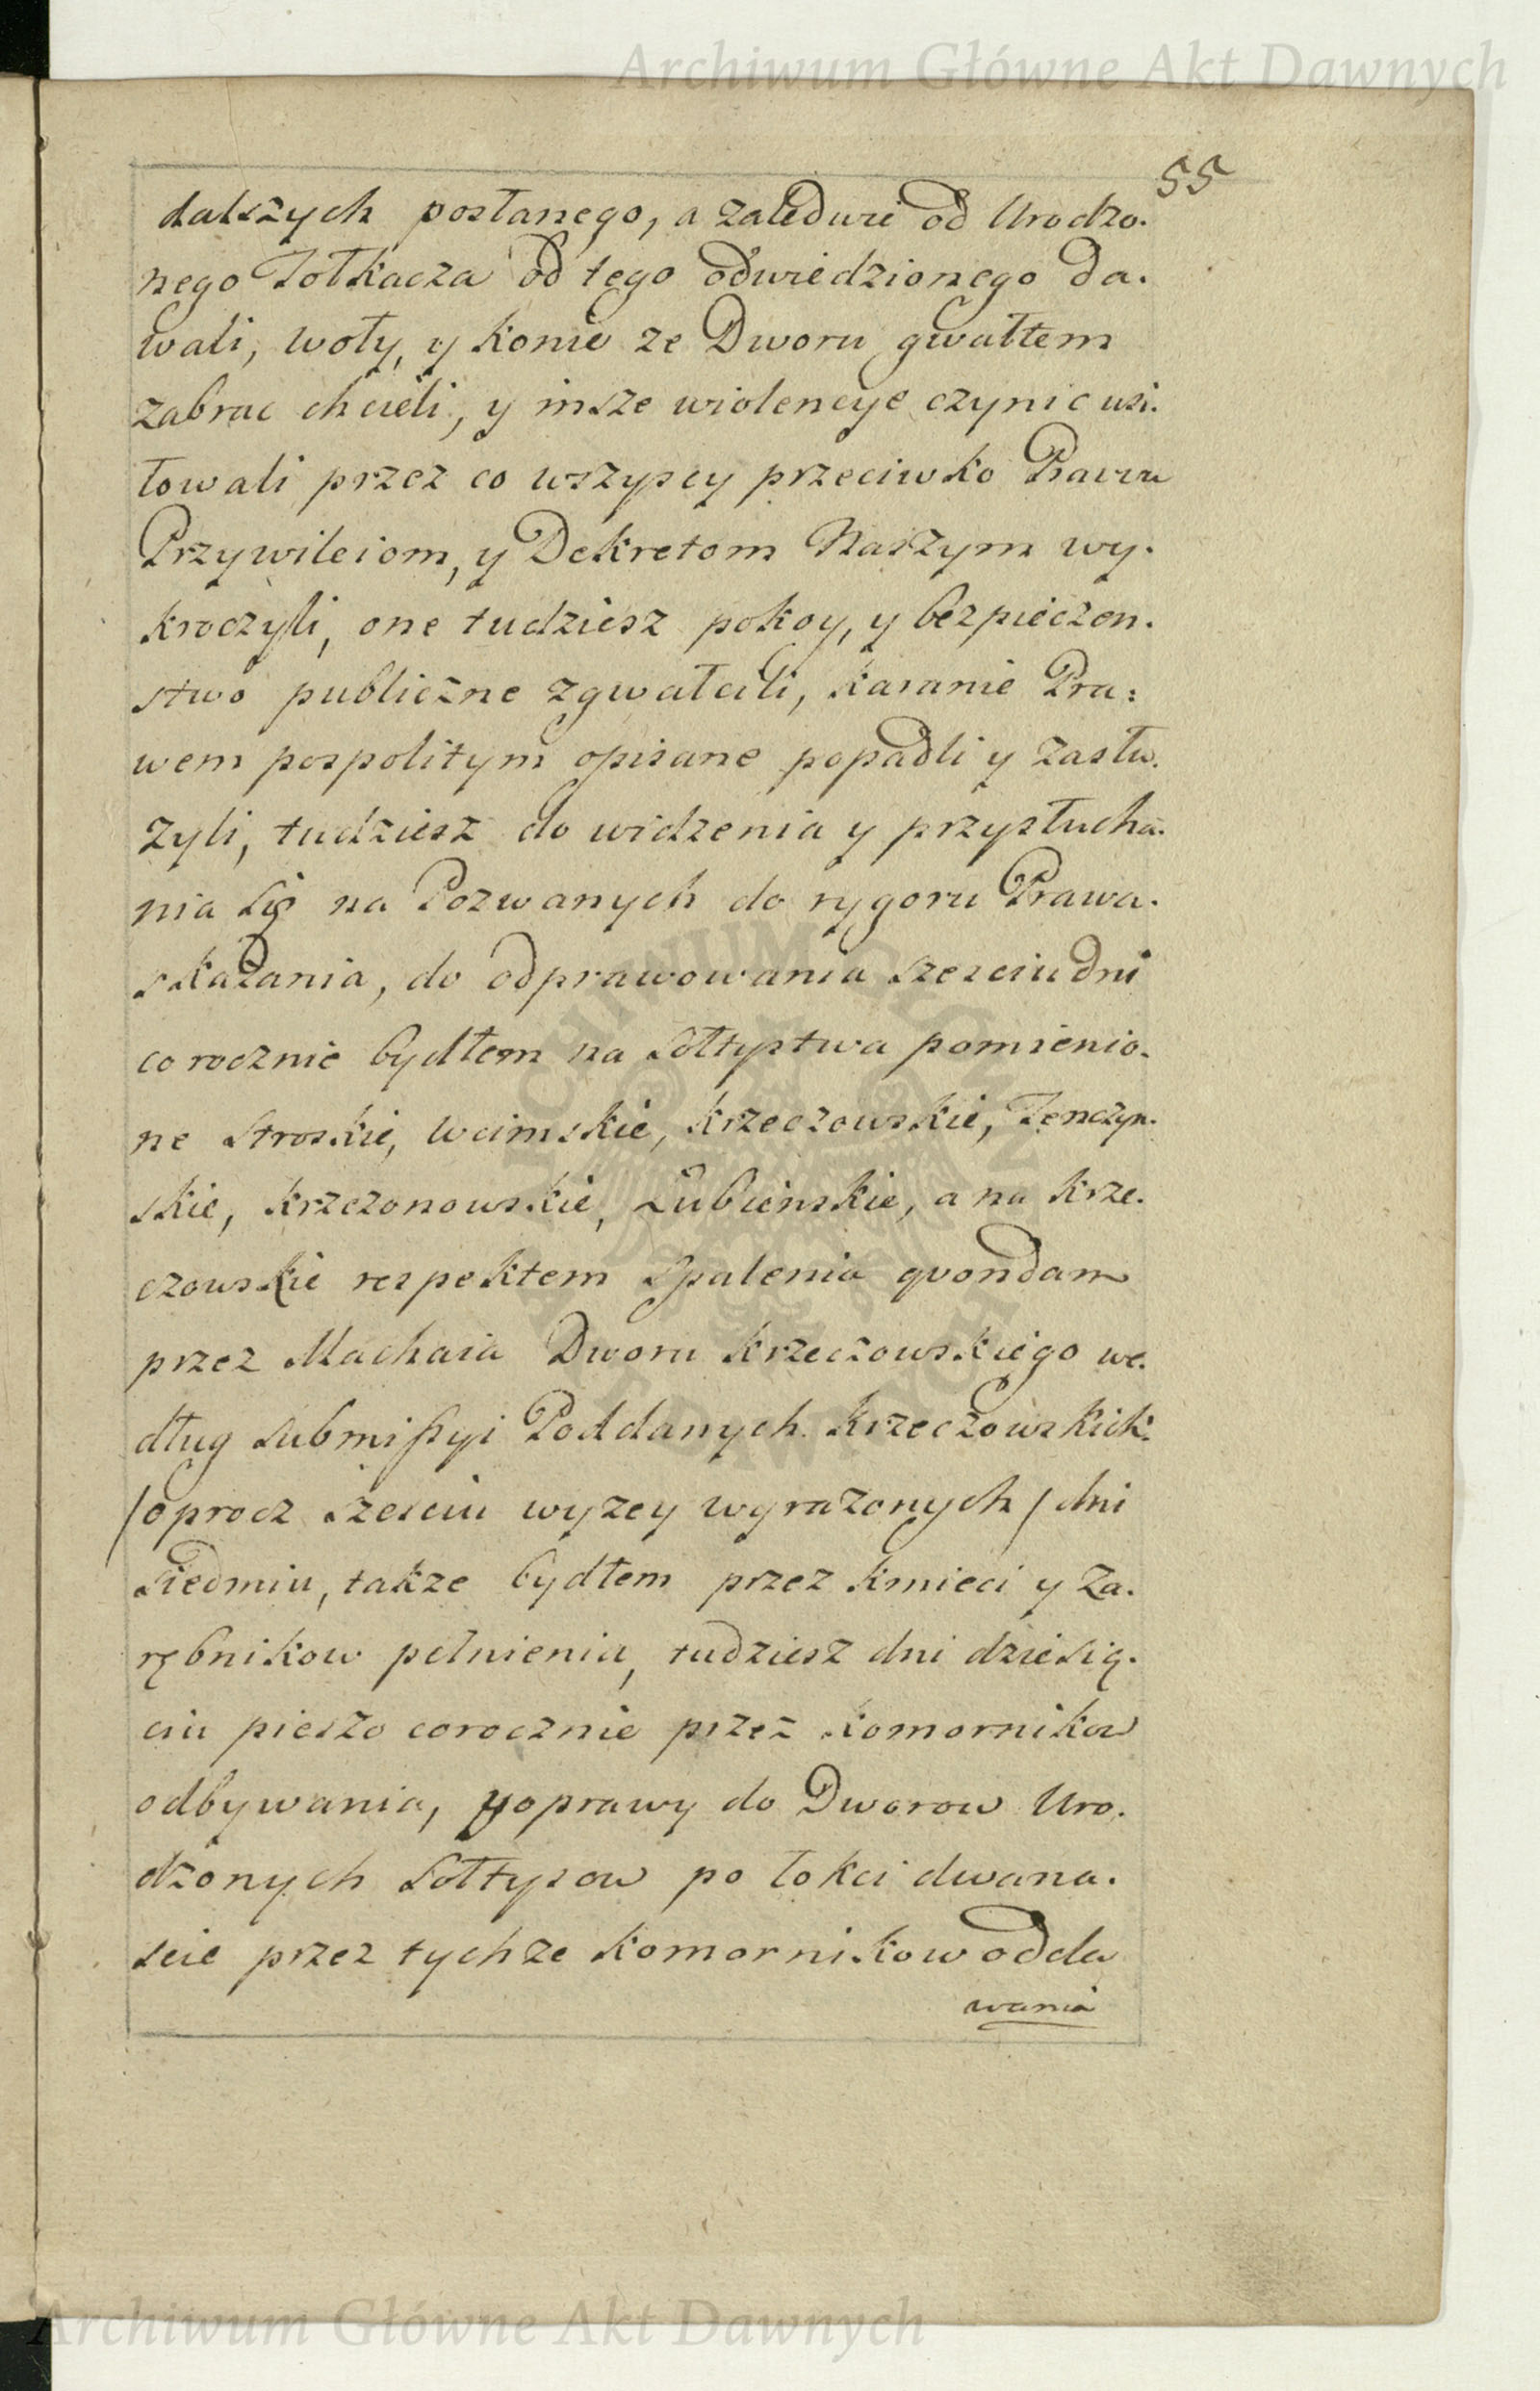 Archiwum Główne Akt Dawnych
55
dalszych posłanego, a zaledwie od Urodzo.
nego Tołkacza od tego odwiedzionego da.
wali, woły, y konie ze Dworu gwałtem
zabrac chcieli, y insze wiolencye czynic usi.
łowali przez co wszyscy przeciwko Prawu
Przywileiom, y Dekretom Naszym wy.
kroczyli, one tudziesz pokoy, y bezpieczen.
stwo publiczne zgwałcili, karanie Pra:
wem pospolitym opisane popadli y zasłu.
żyli, tudziesz do widzenia y przysłucha.
nia się na Pozwanych do rygoru Prawa.
skazania, do odprawowania szesciu dni
co rocznie bydłem na Sołtystwa pomienio.
ne Stroskie, Wcimskie, Krzeczowskie, Tenczyn.
skie, Krzczonowskie, Lubienskie, a na Krze.
czowskie respektem spalenia qvondam
przez Machaia Dworu Krzeczowskiego we.
dług submissyi Poddanych Krzeczowskich.
/oprocz szesciu wyżey wyrażonych/ dni
siedmiu, także bydłem przez kmieci y Za.
rębnikow pełnienia, tudziesz dni dziesię.
ciu pieszo corocznie przez komornikow
odbywania, yoprawy do Dworow Uro.
dzonych Sołtysow po łokci dwana.
scie przez tychze komornikow odda
wania
ARCHIWUM GŁÓWNE AKT DAWNYCH
Archiwum Główne Akt Dawnych